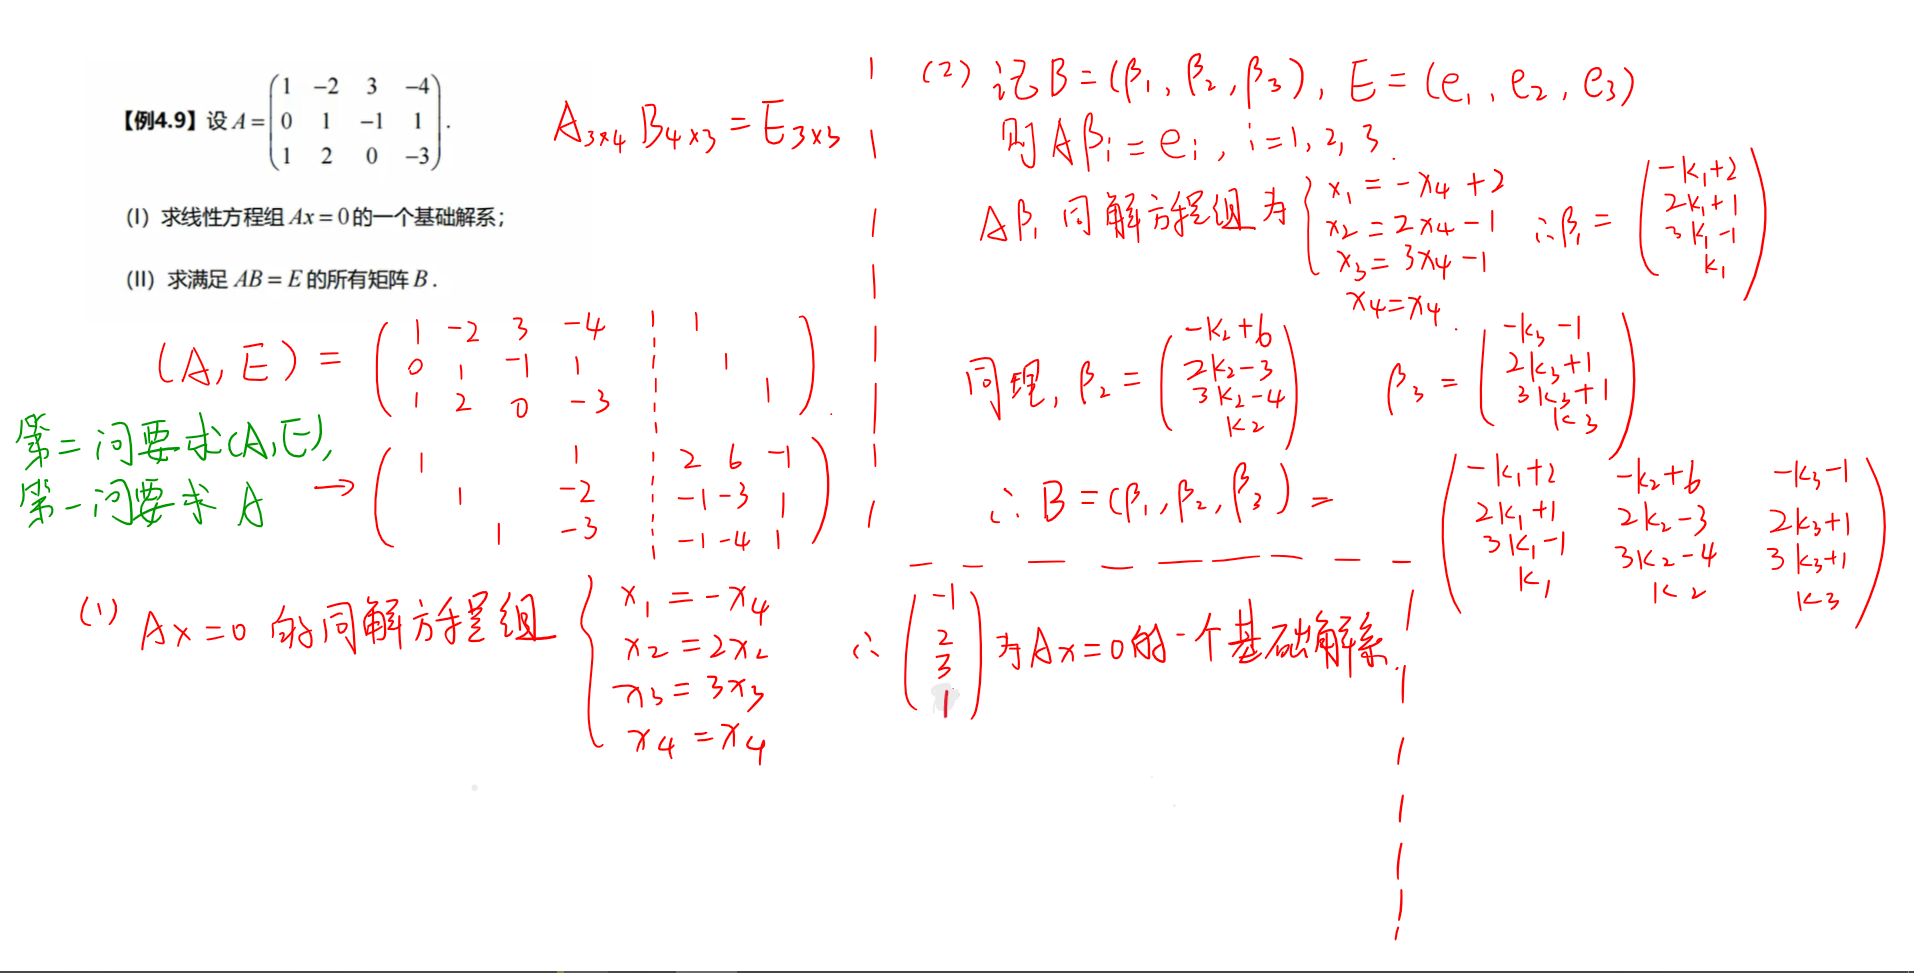 【例4.9】设 A = ( 1 -2 3 -4
0 1 -1 1
1 2 0 -3 ) .
(I) 求线性方程组 Ax = 0 的一个基础解系；
(II) 求满足 AB = E 的所有矩阵 B .
A₃ₓ₄ B₄ₓ₃ = E₃ₓ₃
(A, E) = ( 1 -2 3 -4 ¦ 1
0 1 -1 1 ¦ 1
1 2 0 -3 ¦ 1 ) .
第二问要求(A,E),
第一问要求 A
→ ( 1 1 ¦ 2 6 -1
1 -2 ¦ -1 -3 1
1 -3 ¦ -1 -4 1 )
(1) Ax=0 的同解方程组 { x₁ = -x₄
x₂ = 2x₂
x₃ = 3x₃
x₄ = x₄
∴ ( -1
2
3
1 ) 为 Ax=0 的一个基础解系.
(2) 记 B = (β₁, β₂, β₃), E = (e₁, e₂, e₃)
则 Aβᵢ = eᵢ, i=1, 2, 3.
Aβ₁ 同解方程组为 { x₁ = -x₄ + 2
x₂ = 2x₄ - 1
x₃ = 3x₄ - 1
x₄ = x₄ .
∴ β₁ = ( -k₁+2
2k₁+1
3k₁-1
k₁ )
同理, β₂ = ( -k₂+6
2k₂-3
3k₂-4
k₂ )
β₃ = ( -k₃-1
2k₃+1
3k₃+1
k₃ )
∴ B = (β₁, β₂, β₃) = ( -k₁+2 -k₂+6 -k₃-1
2k₁+1 2k₂-3 2k₃+1
3k₁-1 3k₂-4 3k₃+1
k₁ k₂ k₃ )